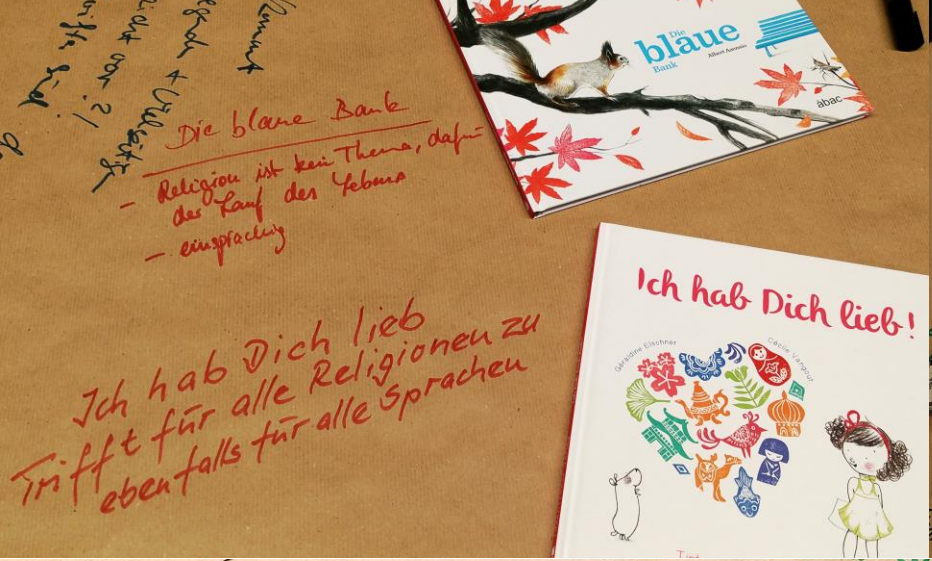 kommt
+ Vielseitig
nicht vor ?!
sind
Die blaue Bank
- Religion ist kein Thema, dafür
der Lauf des Lebens
- einsprachig
Ich hab Dich lieb
Trifft für alle Religionen zu
ebenfalls für alle Sprachen
Die
blaue
Bank
Albert Asensio
ábac
Ich hab Dich lieb!
Géraldine Elschner
Cécile Vangout